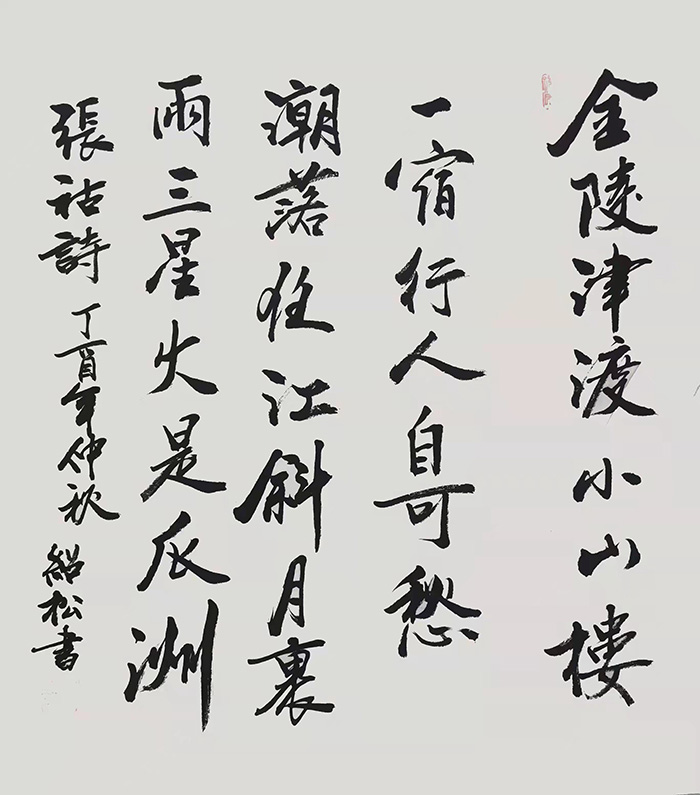 金陵津渡小山樓
一宿行人自可愁
潮落往江斜月裏
兩三星火是瓜洲
張祜詩 丁酉年仲秋 紹松書